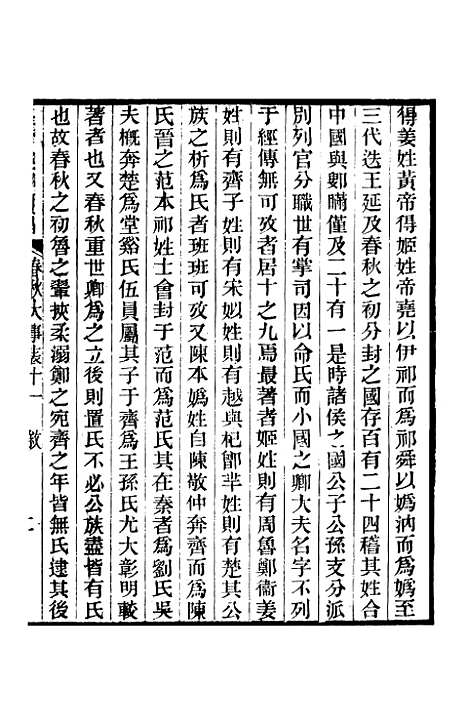 得姜姓黃帝得姬姓帝堯以伊祁而爲祁舜以嬀汭而爲嬀至
三代迭王延及春秋之初分封之國存百有二十四稽其姓合
中國與鄋瞞僅及二十有一是時諸侯之國公子公孫支分派
別列官分職世有掌司因以命氏而小國之卿大夫名字不列
于經傳無可攷者居十之九焉最著者姬姓則有周魯鄭衞姜
姓則有齊子姓則有宋姒姓則有越與杞鄫羋姓則有楚其公
族之析爲氏者班班可攷又陳本嬀姓自陳敬仲奔齊而爲陳
氏晉之范本祁姓士會封于范而爲范氏其在秦者爲劉氏吳
夫槪奔楚爲堂谿氏伍員屬其子于齊爲王孫氏尤大彰明較
著者也又春秋重世卿爲之立後則置氏不必公族盡皆有氏
也故春秋之初魯之翬挾柔溺鄭之宛齊之年皆無氏逮其後
春秋大事表十一 敘 二